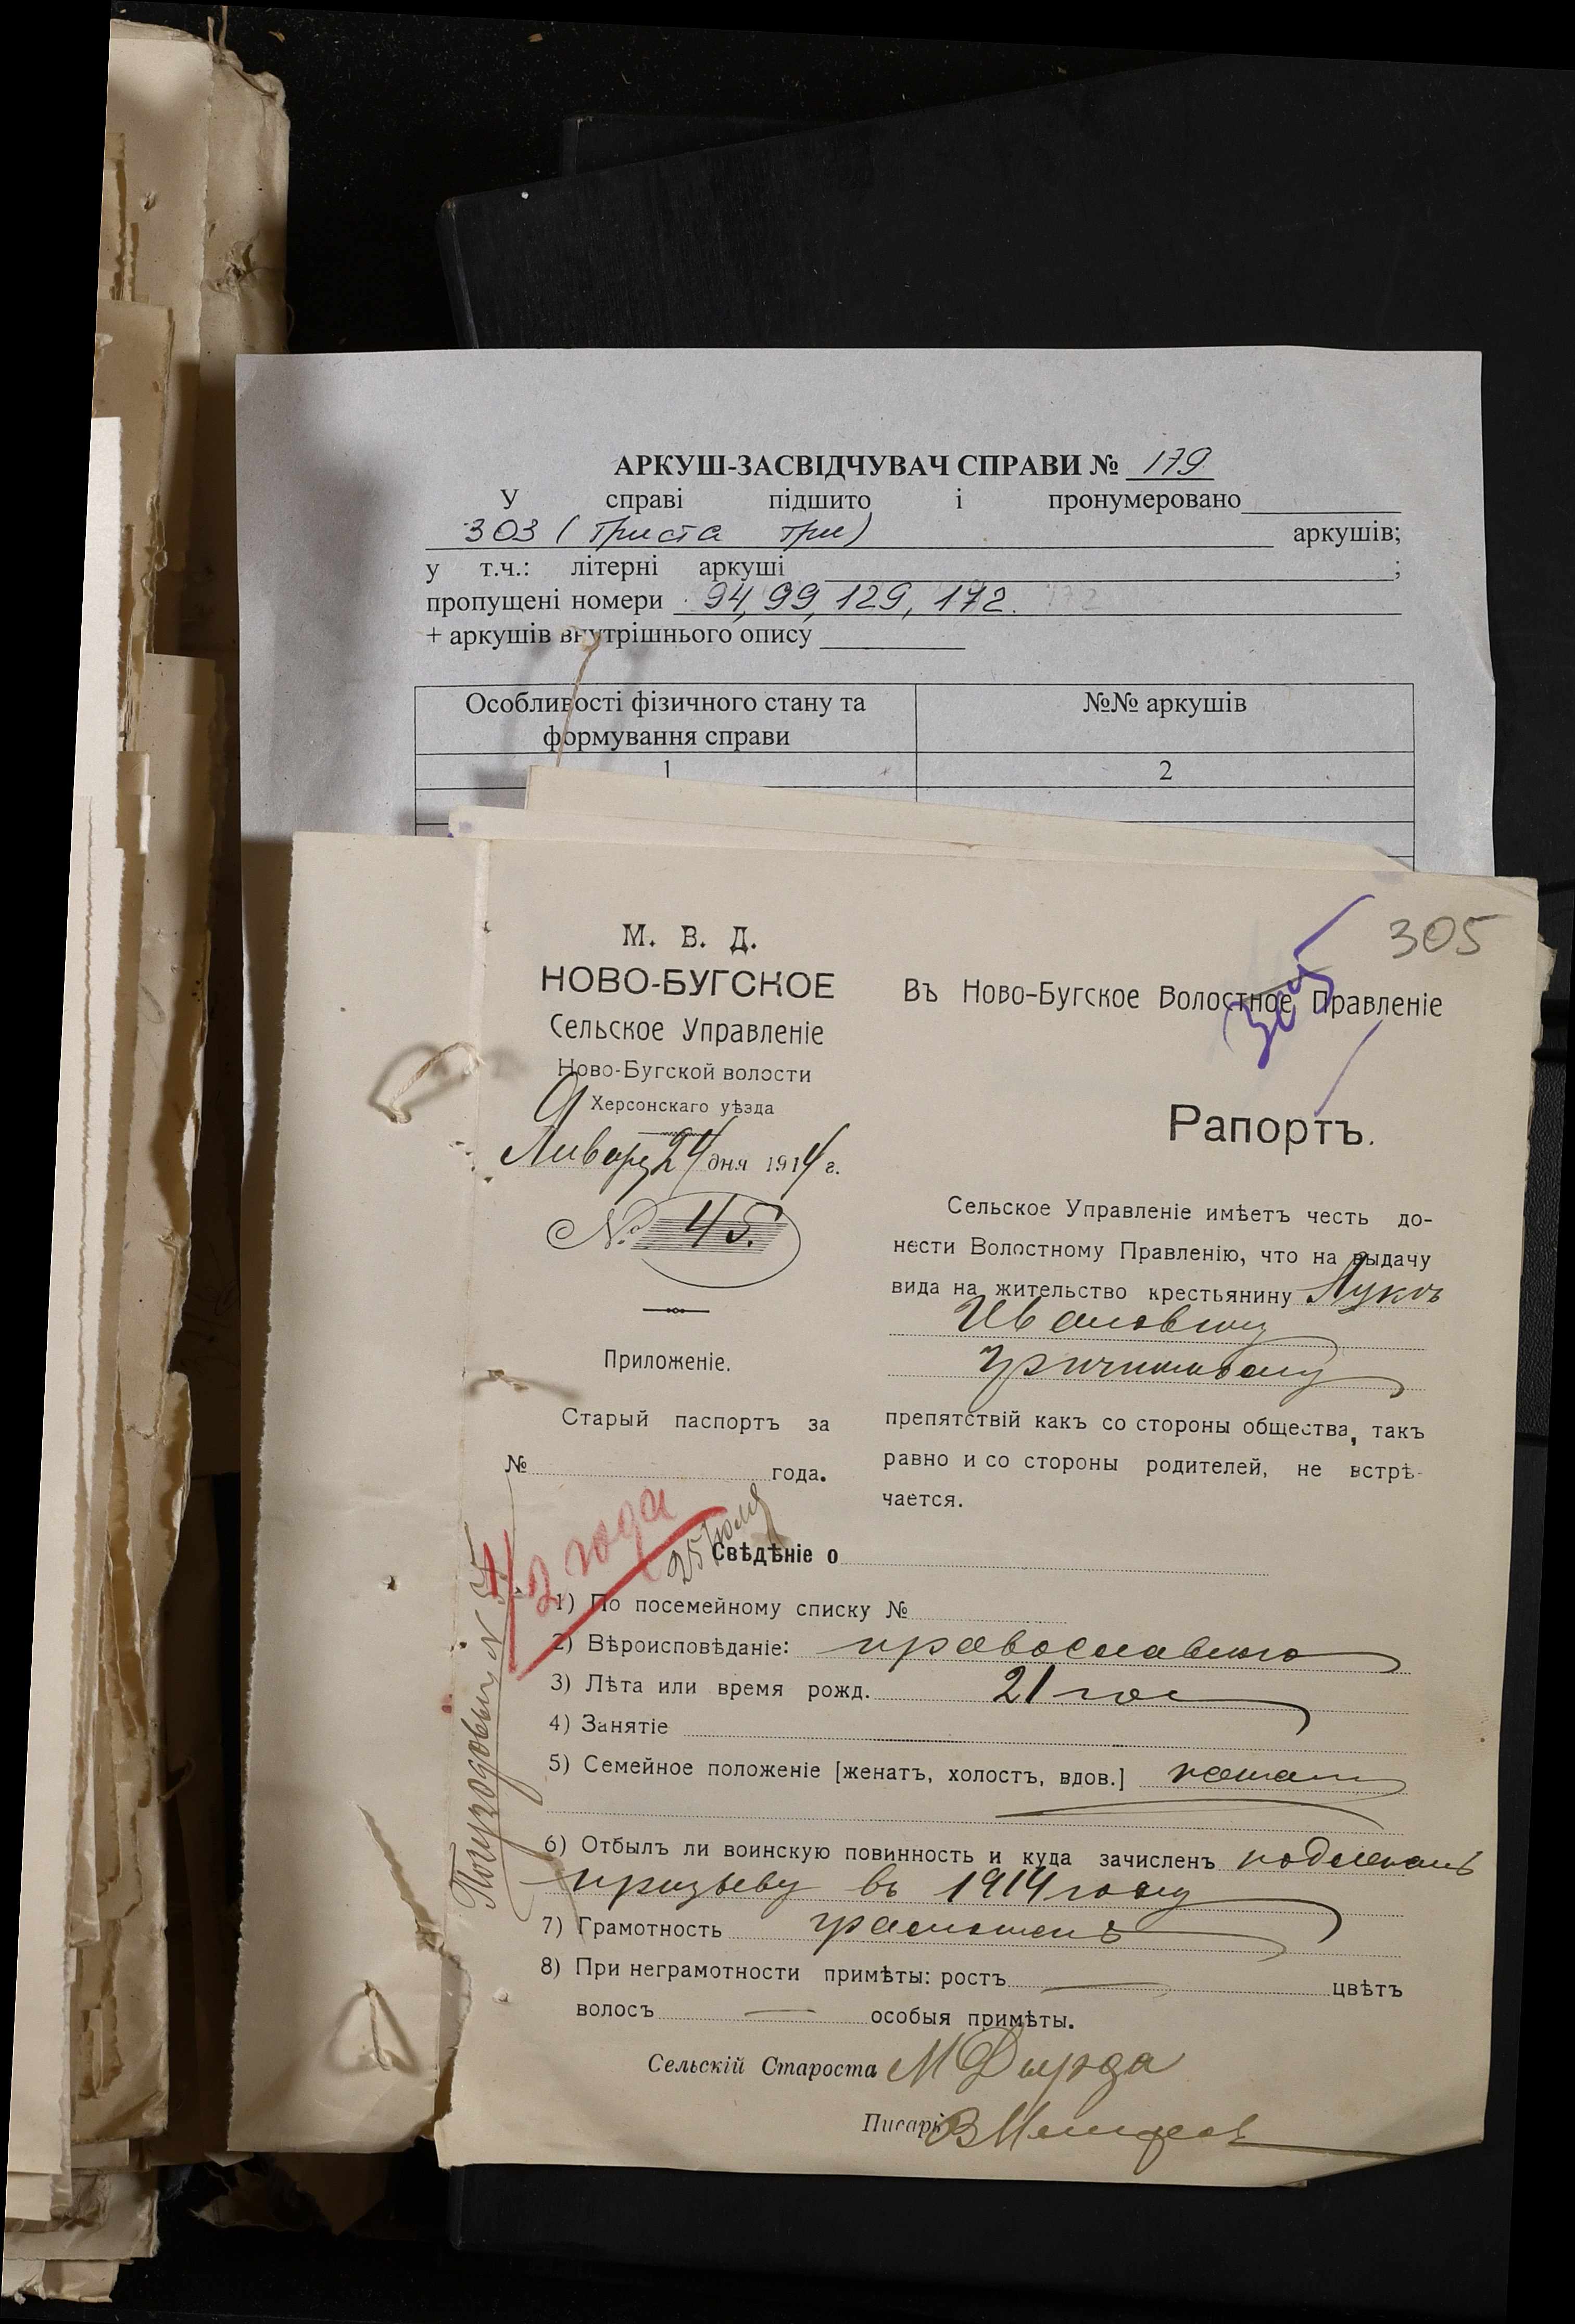 АРКУШ-ЗАСВІДЧУВАЧ СПРАВИ № 179
У справі підшито і пронумеровано
303 (триста три) аркушів;
у т.ч.: літерні аркуші ;
пропущені номери 94, 99, 129, 172.
+ аркушів внутрішнього опису
Особливості фізичного стану та формування справи
№№ аркушів
1
2
305
М. В. Д.
НОВО-БУГСКОЕ
Сельское Управленіе
Ново-Бугской волости
Херсонскаго уѣзда
Января 24 дня 1914 г.
№ 45.
Приложеніе.
Старый паспортъ за
№ года.
Въ Ново-Бугское Волостное Правленіе
Рапортъ.
Сельское Управленіе имѣетъ честь до-
нести Волостному Правленію, что на выдачу
вида на жительство крестьянину Лукѣ
Ивановичу
препятствій какъ со стороны общества, такъ
равно и со стороны родителей, не встрѣ-
чается.
2 года
25 Июля
Свѣдѣніе о
1) По посемейному списку №
2) Вѣроисповѣданіе: православного
3) Лѣта или время рожд. 21 год
4) Занятіе
5) Семейное положеніе [женатъ, холостъ, вдов.] женат
6) Отбылъ ли воинскую повинность и куда зачисленъ подлежитъ
призыву въ 1914 году
7) Грамотность грамотенъ
8) При неграмотности примѣты: ростъ цвѣтъ
волосъ особыя примѣты.
Сельскій Староста М Дырда
Писарь